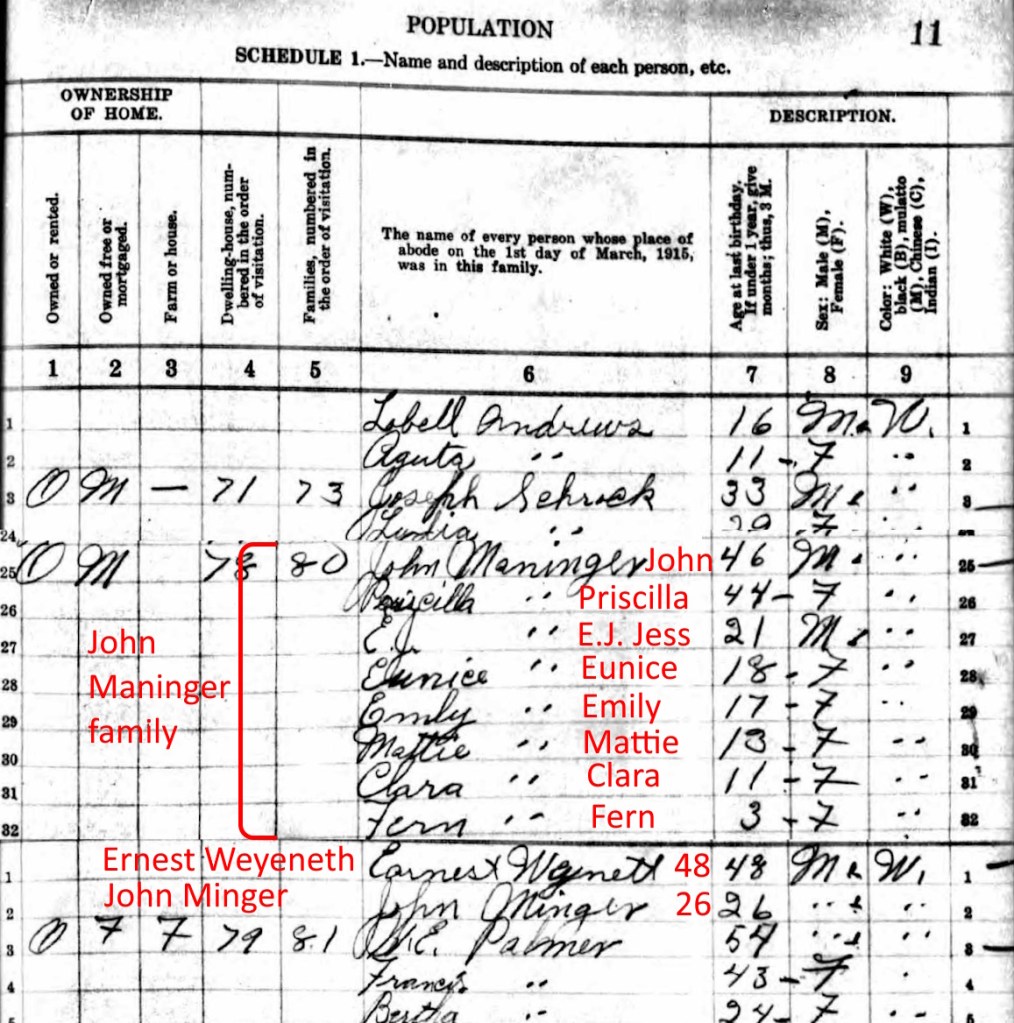 POPULATION 11
SCHEDULE 1.—Name and description of each person, etc.
OWNERSHIP OF HOME. DESCRIPTION.
Owned or rented.
Owned free or mortgaged.
Farm or house.
Dwelling-house, numbered in the order of visitation.
Families, numbered in the order of visitation.
The name of every person whose place of
abode on the 1st day of March, 1915,
was in this family.
Age at last birthday. If under 1 year, give months; thus, 3 M.
Sex: Male (M), Female (F).
Color: White (W), black (B), mulatto (M), Chinese (C), Indian (I).
1 2 3 4 5 6 7 8 9
1 Lobell Andrews 16 M. W. 1
2 Aguta " 11 - F " 2
3 O M — 71 73 Joseph Schrock 33 M. " 3
24 " F
25 O M 78 80 John Maninger John 46 M. " 25
26 Priscilla " Priscilla 44 - F " 26
27 E.J. " E.J. Jess 21 M. " 27
28 Eunice " Eunice 18 - F " 28
29 Emily " Emily 17 - F " 29
30 Mattie " Mattie 13 - F " 30
31 Clara " Clara 11 - F " 31
32 Fern " Fern 3 - F " 32
John
Maninger
family
1 Ernest Weyeneth Earnest Wgenett 48 48 M. W. 1
2 John Minger John Minger 26 26 " " 2
3 O F F 79 81 W.E. Palmer 54 " " 3
4 Francis " 43 - F 4
5 Bertha 24 - F " 5